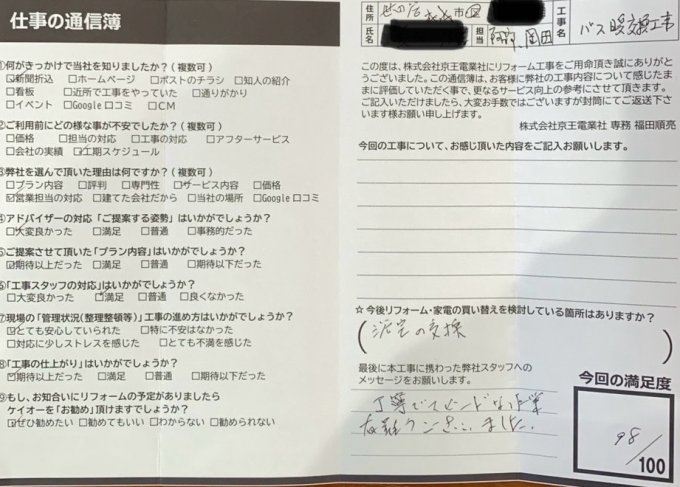 仕事の通信簿
①何がきっかけで当社を知りましたか?(複数可)
☑新聞折込 □ホームページ □ポストのチラシ □知人の紹介
□看板 □近所で工事をやっていた □通りがかり
□イベント □Google口コミ □CM
②ご利用前にどの様な事が不安でしたか?(複数可)
□価格 □担当の対応 □工事の対応 □アフターサービス
□会社の実績 ☑工期スケジュール
③弊社を選んで頂いた理由は何ですか?(複数可)
□プラン内容 □評判 □専門性 □サービス内容 □価格
☑営業担当の対応 □建てた会社だから □当社の場所 □Google口コミ
④アドバイザーの対応「ご提案する姿勢」はいかがでしょうか?
☑大変良かった □満足 □普通 □事務的だった
⑤ご提案させて頂いた「プラン内容」はいかがでしょうか?
☑期待以上だった □満足 □普通 □期待以下だった
⑥「工事スタッフの対応」はいかがでしょうか?
□大変良かった ☑満足 □普通 □良くなかった
⑦現場の「管理状況(整理整頓等)」工事の進め方はいかがでしょうか?
☑とても安心していられた □特に不安はなかった
□対応に少しストレスを感じた □とても不満を感じた
⑧「工事の仕上がり」はいかがでしょうか?
☑期待以上だった □満足 □普通 □期待以下だった
⑨もし、お知合いにリフォームの予定がありましたら
ケイオーを「お勧め」頂けますでしょうか?
☑ぜひ勧めたい □勧めてもいい □わからない □勧められない
住所 市区
氏名 担当 岡田
工事名 バス暖交換工事
この度は、株式会社京王電業社にリフォーム工事をご用命頂き誠にありがと
うございました。この通信簿は、お客様に弊社の工事内容について感じたま
まに評価していただく事で、更なるサービス向上の参考にさせて頂きます。
ご記入いただけましたら、大変お手数ではございますが封筒にてご返送下さ
います様お願い申し上げます。
株式会社京王電業社 専務 福田順亮
今回の工事について、お感じ頂いた内容をご記入お願いします。
☆今後リフォーム・家電の買い替えを検討している箇所はありますか?
の交換
最後に本工事に携わった弊社スタッフへの
メッセージをお願いします。
丁寧でスピードな作業
有難うございました。
今回の満足度
98/100